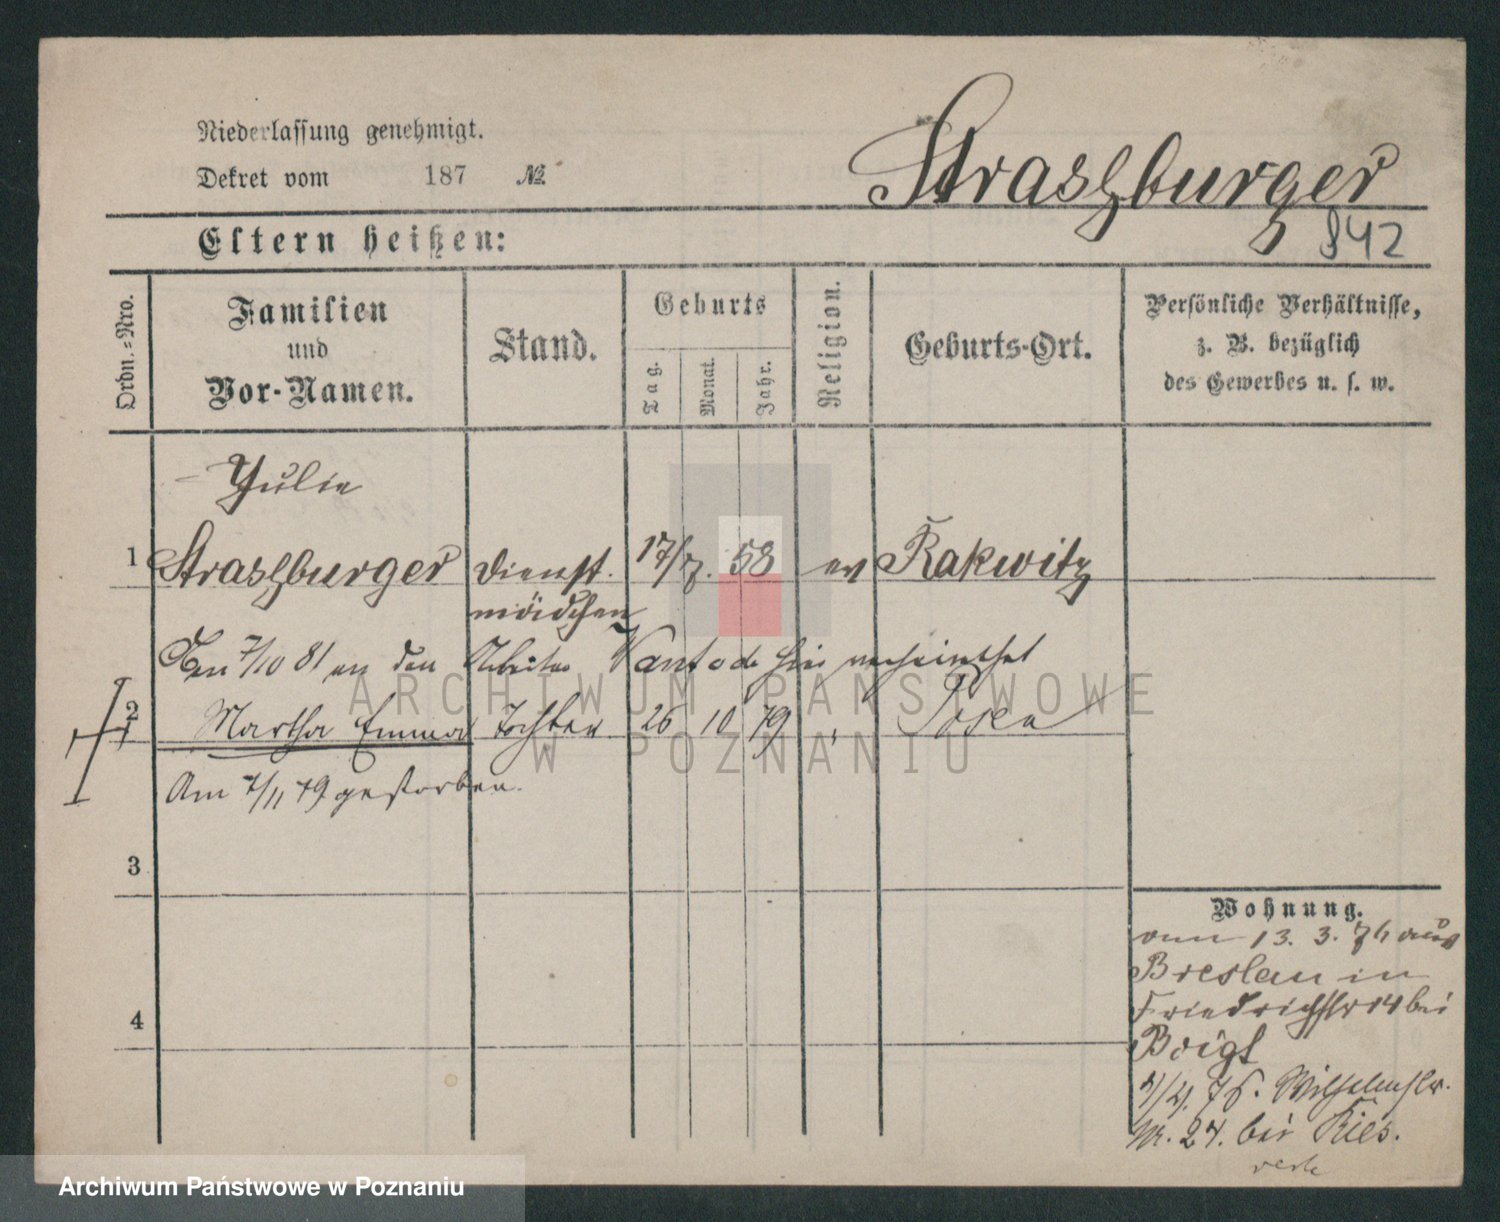 Niederlassung genehmigt.
Dekret vom 187 №
Straszburger
842
Eltern heißen:
Ordn.-Nro.
Familien
und
Vor-Namen.
Stand.
Geburts
Tag.
Monat.
Jahr.
Religion.
Geburts-Ort.
Persönliche Verhältnisse,
z. B. bezüglich
des Gewerbes u. s. w.
Julie
1 Straszburger Dienst. 17/7. 58 ev Rakwitz
mädchen
Den 7/10 81 an den Arbeiter hier verheirathet
2 Martha Emma Tochter 26 10 79 " Posen
Am 7/11 79 gestorben.
3
4
Wohnung.
vom 13. 3. 76 aus
Breslau in
Friedrichstr 14 bei
Voigt
76. Wilhelmstr.
Nr. 24. bei Ries.
ARCHIWUM PAŃSTWOWE
W POZNANIU
Archiwum Państwowe w Poznaniu